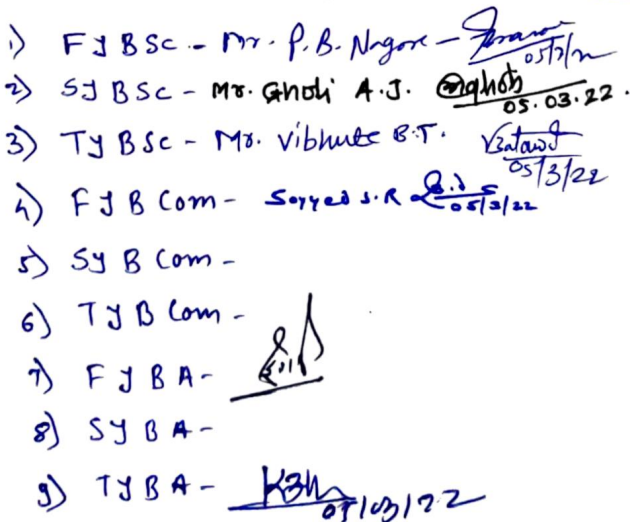 1) FYBSc - Mr. P.B. Nagore - 05/3/22
2) SYBSc - Mr. Gholi A.J. 05.03.22.
3) TYBSc - Mr. Vibhute B.T. 05/3/22
4) FYBCom - Sayyed S.R 05/3/22
5) SYBCom -
6) TYBCom -
7) FYBA -
8) SYBA -
9) TYBA - 05/03/22